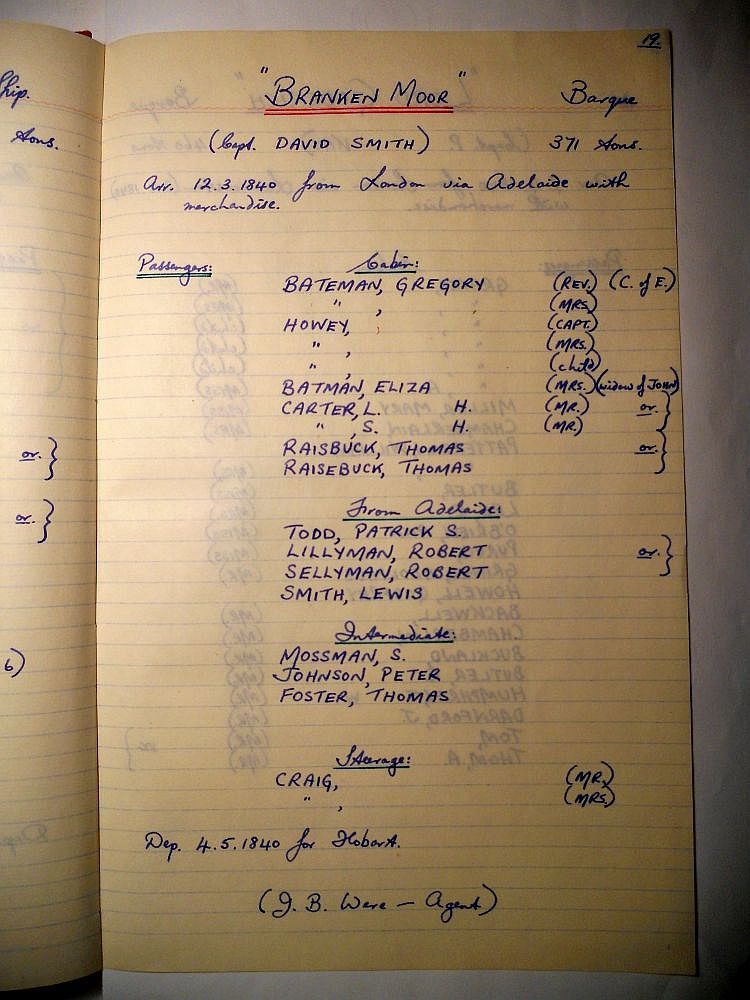 19.
Ship.
"BRANKEN MOOR" Barque
tons.
(Capt. DAVID SMITH) 371 tons.
Arr. 12.3.1840 from London via Adelaide with
merchandise.
Passengers: Cabin:
BATEMAN, GREGORY (REV.) (C. of E.)
" , (MRS.)
HOWEY, (CAPT.)
" , (MRS.)
" , (child)
BATMAN, ELIZA (MRS.) (widow of JOHN)
CARTER, L. H. (MR.) or. }
" , S. H. (MR.)
or. } RAISBUCK, THOMAS or. }
RAISEBUCK, THOMAS
From Adelaide:
or. } TODD, PATRICK S.
LILLYMAN, ROBERT or. }
SELLYMAN, ROBERT
SMITH, LEWIS
Intermediate:
6) MOSSMAN, S.
JOHNSON, PETER
FOSTER, THOMAS
Steerage:
CRAIG, (MR.)
" , (MRS.)
Dep. 4.5.1840 for Hobart.
(J. B. Were — Agent)